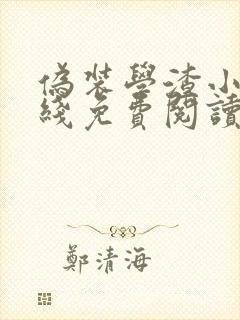 偽裝學渣小
綫免費閱讀
鄭清海